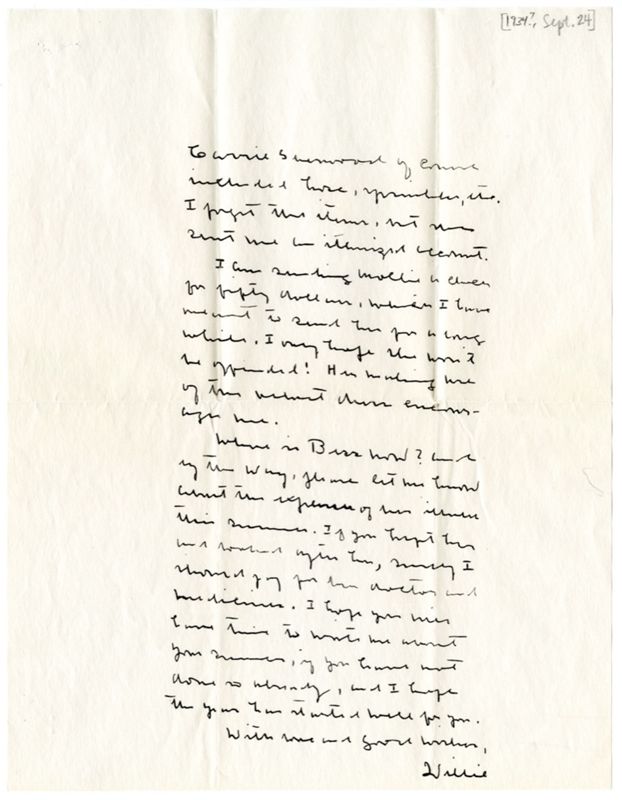 [1934?, Sept. 24]
to Carrie Sherwood of course
included hose, sprinkler, etc.
I forget the items, but she
sent me an itemized account.
I am sending Mollie a check
for fifty dollars, which I have
meant to send her for a long
while. I only hope she won't
be offended! Her making use
of the velvet dress encour-
ages me.
Where is Bess now? and
by the way, please let me know
about the expense of her illness
this summer. If you kept her
and looked after her, surely I
should pay for her doctor and
medicines. I hope you will
have time to write me about
your summer, if you have not
done so already, and I hope
the year has started well for you.
With love and good wishes,
Willie